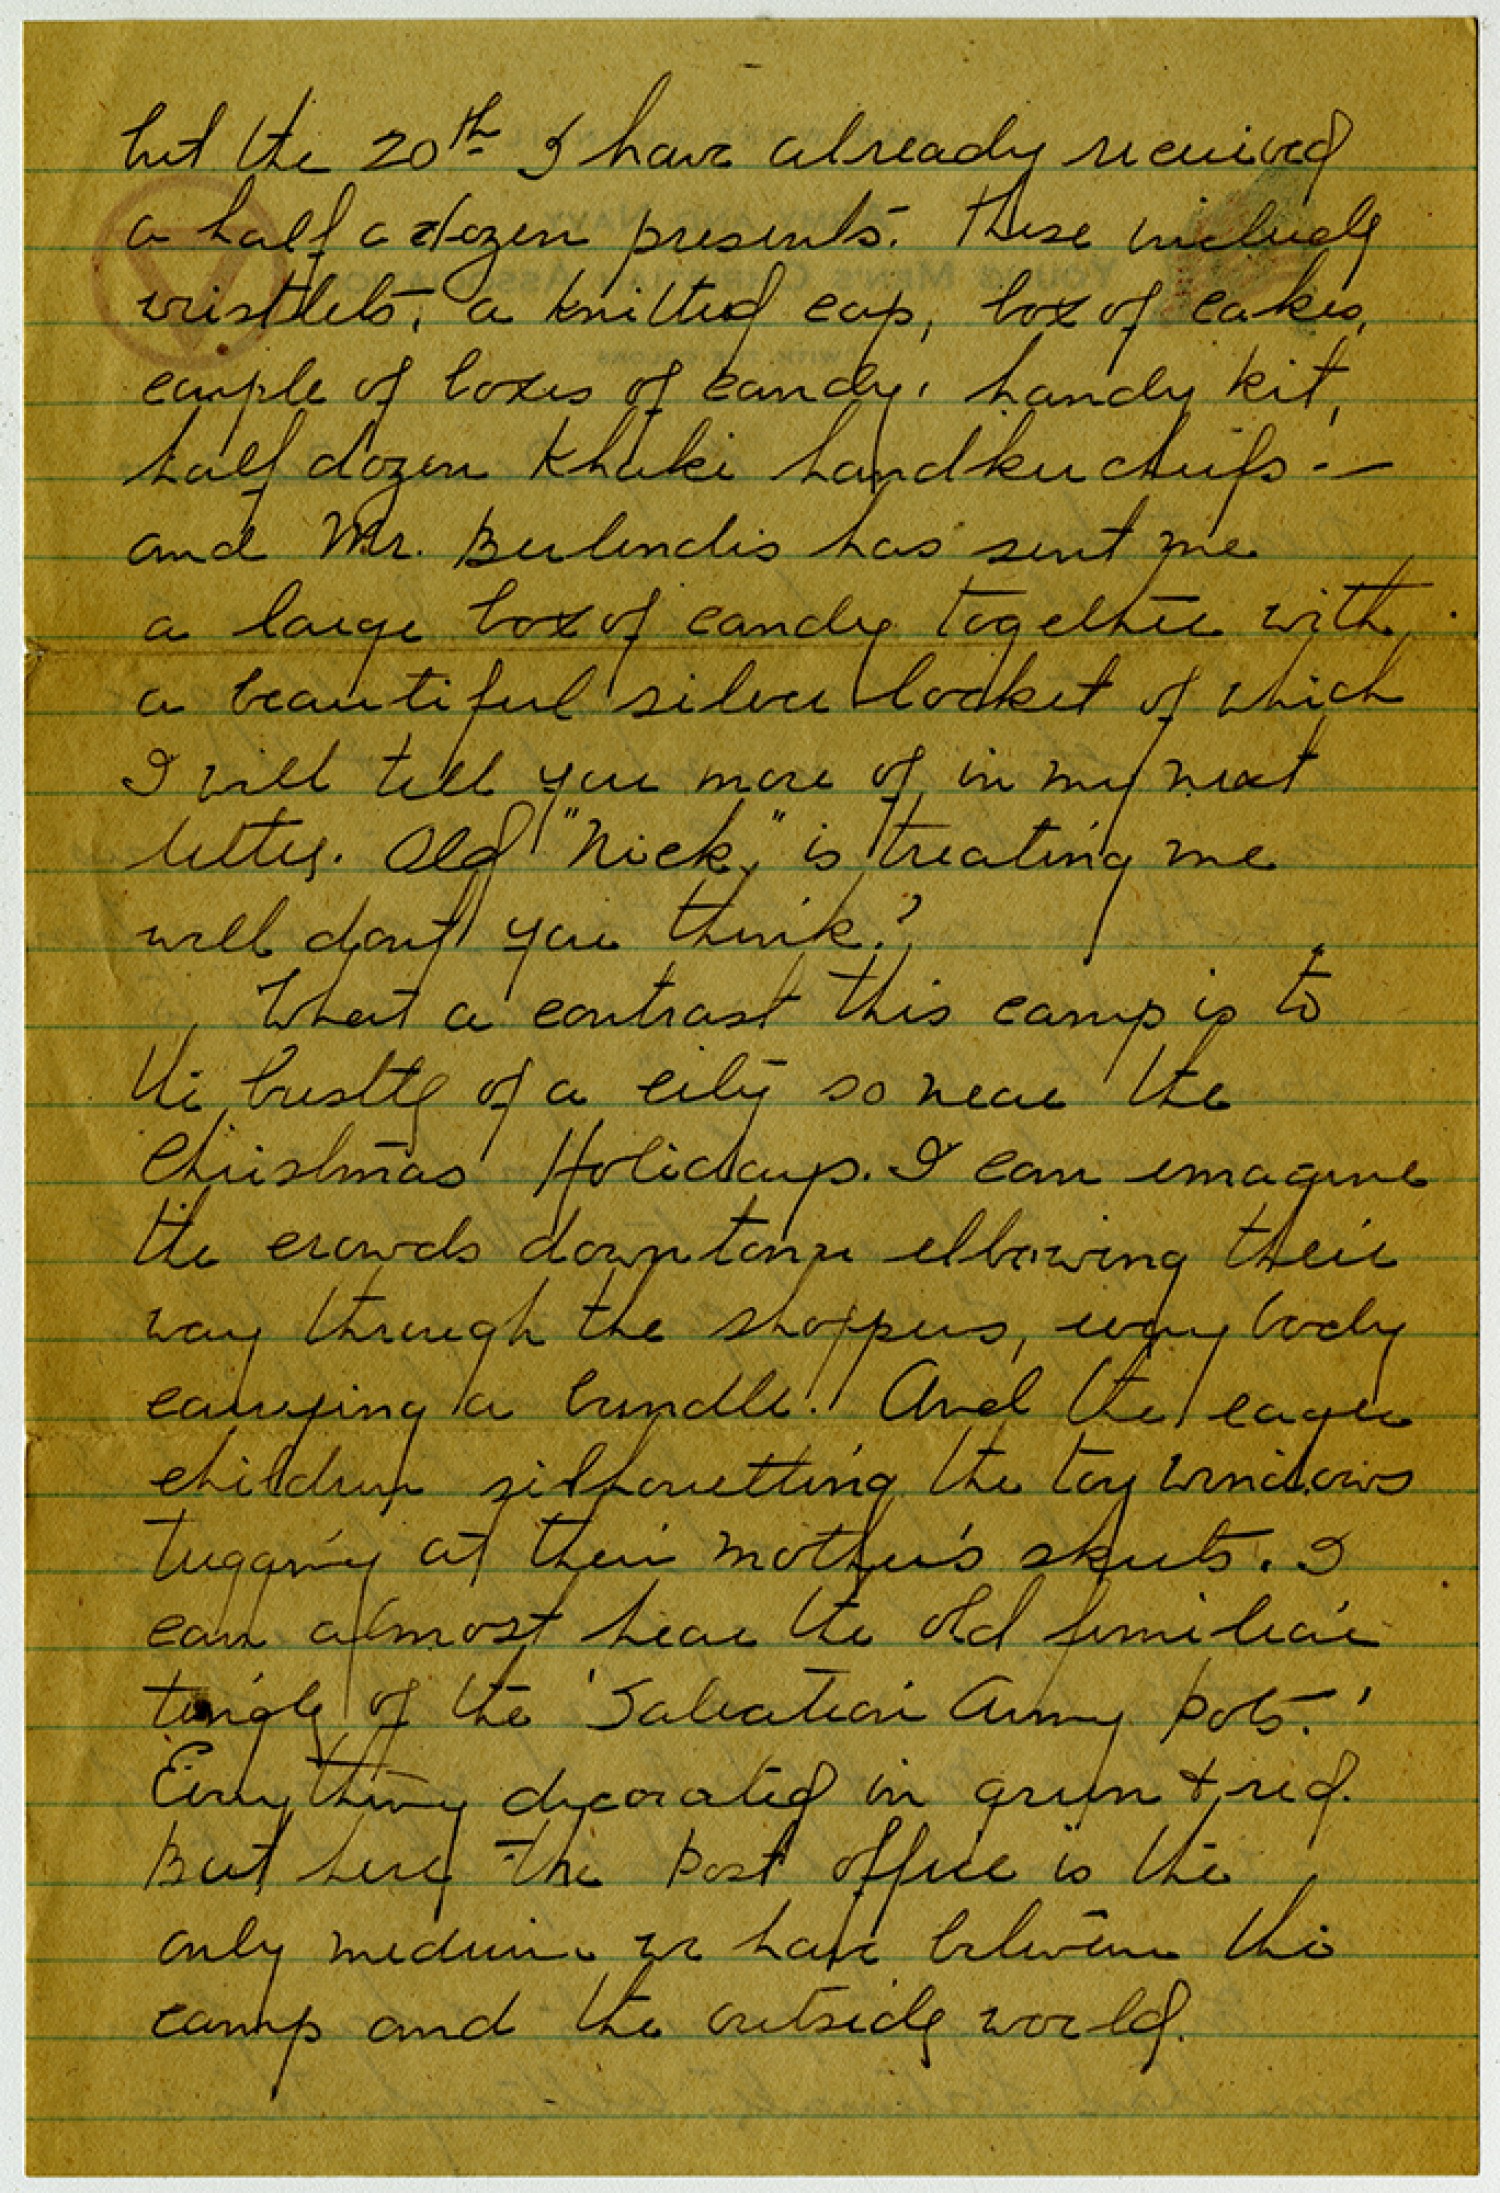 but the 20th I have already received
a half a dozen presents. These include
wristlets, a knitted cap, box of cakes,
couple of boxes of candy, handy kit,
half dozen Khaki handkerchiefs -—
and Mr. Berlendis has sent me
a large box of candy together with
a beautiful silver locket of which
I will tell you more of in my next
letter. Old "Nick" is treating me
well dont you think?
What a contrast this camp is to
the bustle of a city so near the
Christmas Holidays. I can imagine
the crowds downtown elbowing their
way through the shoppers, every body
carrying a bundle. And the eager
children silhouetting the toy windows
tugging at their mother's skirts. I
can almost hear the old familiar
tingle of the 'Salvation Army pots.'
Everything decorated in green & red.
But here the post office is the
only medium we have between the
camp and the outside world.
ARMY AND NAVY
YOUNG MEN'S CHRISTIAN ASSOCIATION
"WITH THE COLORS"